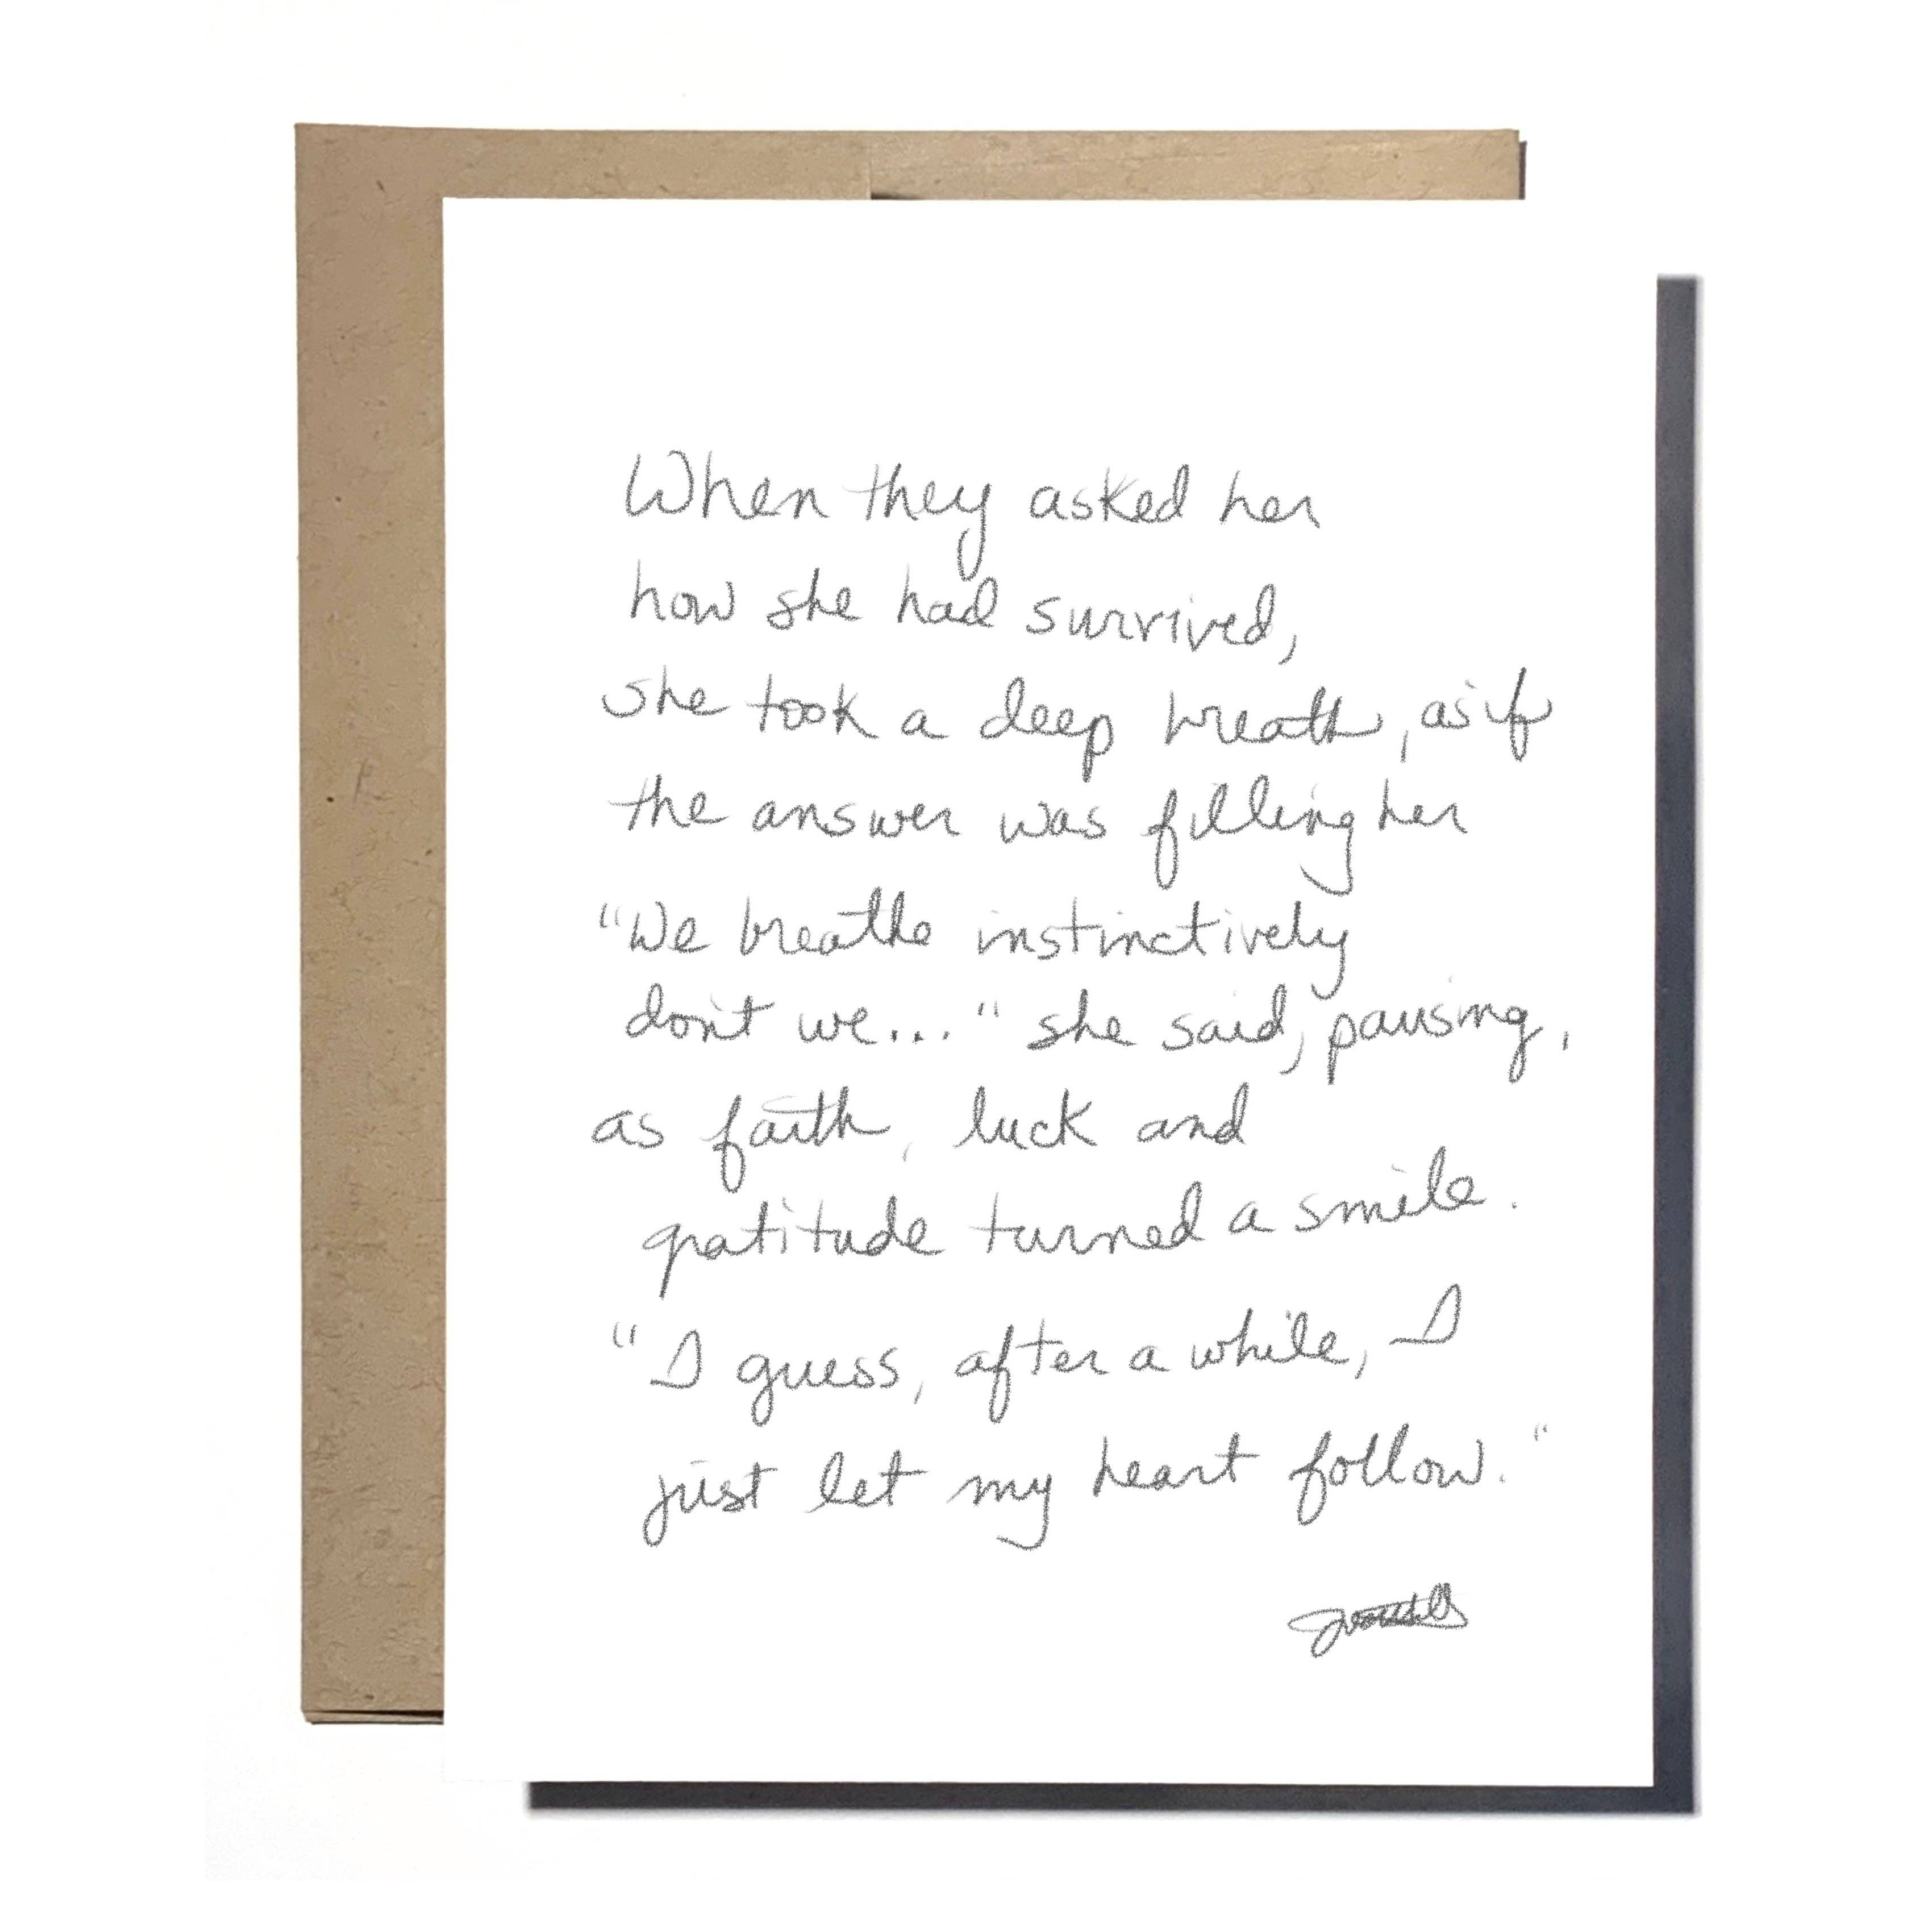 When they asked her
how she had survived,
she took a deep breath, as if
the answer was filling her
"We breathe instinctively
don't we..." she said, pausing,
as faith, luck and
gratitude turned a smile.
"I guess, after a while, I
just let my heart follow."